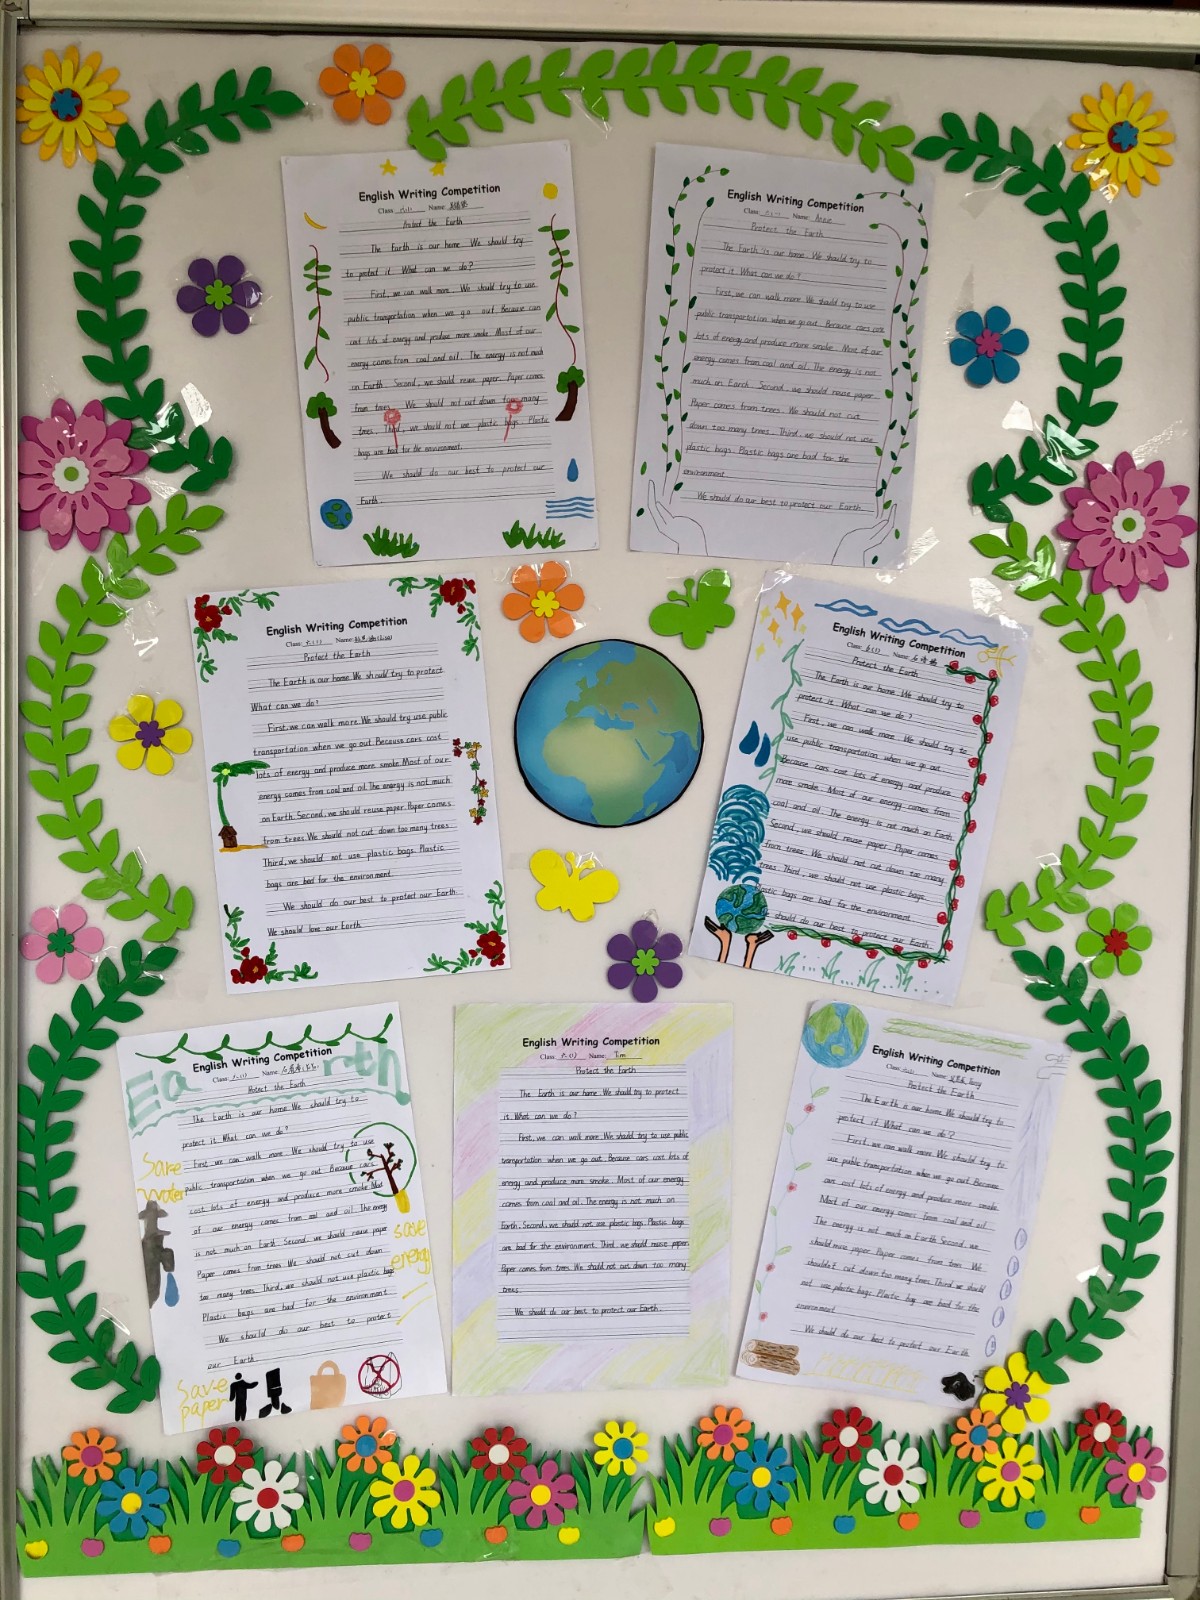 English Writing Competition
Class: Name:
Protect the Earth
The Earth is our home. We should try
to protect it. What can we do?
First, we can walk more. We should try to use
public transportation when we go out. Because cars
cost lots of energy and produce more smoke. Most of our
energy comes from coal and oil. The energy is not much
on Earth. Second, we should reuse paper. Paper comes
from trees. We should not cut down too many
trees. Third, we should not use plastic bags. Plastic
bags are bad for the environment.
We should do our best to protect our
Earth.
English Writing Competition
Class: Name: Anne
Protect the Earth
The Earth is our home. We should try to
protect it. What can we do?
First, we can walk more. We should try to use
public transportation when we go out. Because cars cost
lots of energy and produce more smoke. Most of our
energy comes from coal and oil. The energy is not
much on Earth. Second, we should reuse paper.
Paper comes from trees. We should not cut
down too many trees. Third, we should not use
plastic bags. Plastic bags are bad for the
environment.
We should do our best to protect our Earth.
English Writing Competition
Class: 六.(1) Name:
Protect the Earth
The Earth is our home. We should try to protect
What can we do?
First, we can walk more. We should try use public
transportation when we go out. Because cars cost
lots of energy and produce more smoke. Most of our
energy comes from coal and oil. The energy is not much
on Earth. Second, we should reuse paper. Paper comes
from trees. We should not cut down too many trees.
Third, we should not use plastic bags. Plastic
bags are bad for the environment.
We should do our best to protect our Earth.
We should love our Earth.
English Writing Competition
Class: 六(1) Name:
Protect the Earth
The Earth is our home. We should try to
protect is. What can we do?
First, we can walk more. We should try to
use public transportation when we go out.
Because cars cost lots of energy and produce
more smoke. Most of our energy comes from
coal and oil. The energy is not much on Earth.
Second, we should reuse paper. Paper comes
from trees. We should not cut down too many
trees. Third, we should not use plastic bags.
Plastic bags are bad for the environment.
We should do our best to protect our Earth.
Earth
English Writing Competition
Class: 六.(1) Name:
Protect the Earth
The Earth is our home. We should try to
protect it. What can we do?
First, we can walk more. We should try to use
public transportation when we go out. Because cars
cost lots of energy and produce more smoke. Most
of our energy comes from coal and oil. The energy
is not much on Earth. Second, we should reuse paper.
Paper comes from trees. We should not cut down
too many trees. Third, we should not use plastic bags.
Plastic bags are bad for the environment.
We should do our best to protect
our Earth.
Save
Water
save
energy
Save
paper
English Writing Competition
Class: 六.(1) Name: Tim
Protect the Earth
The Earth is our home. We should try to protect
is. What can we do?
First, we can walk more. We should try to use public
transportation when we go out. Because cars cost lots of
energy and produce more smoke. Most of our energy
comes from coal and oil. The energy is not much on
Earth. Second, we should not use plastic bags. Plastic bags
are bad for the environment. Third, we should reuse paper.
Paper comes from trees. We should not cut down too many
trees.
We should do our best to protect our Earth.
English Writing Competition
Class: Name:
Protect the Earth
The Earth is our home. We should try to
protect it. What can we do?
First, we can walk more. We should try to
use public transportation when we go out. Because
cars cost lots of energy and produce more smoke.
Most of our energy comes from coal and oil.
The energy is not much on Earth. Second, we
should reuse paper. Paper comes from trees. We
shouldn't cut down too many trees. Third, we should
not use plastic bags. Plastic bag are bad for the
environment.
We should do our best to protect our Earth.